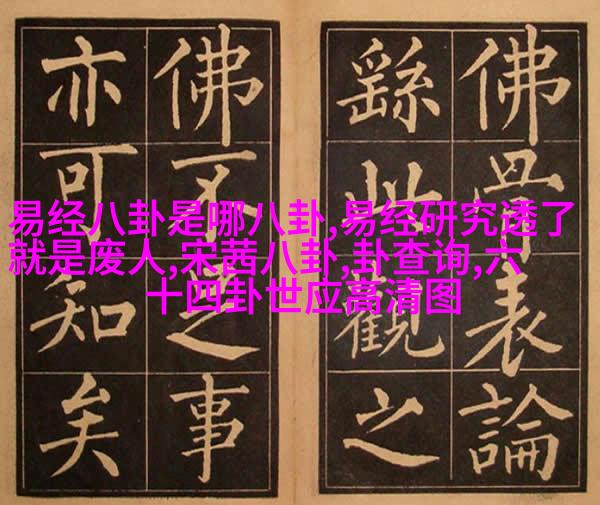 佛骨表論
繇此觀之
佛不足事
亦可知矣
易经八卦是哪八卦,易经研究透了
就是废人,宋茜八卦,卦查询,六
十四卦世应高清图